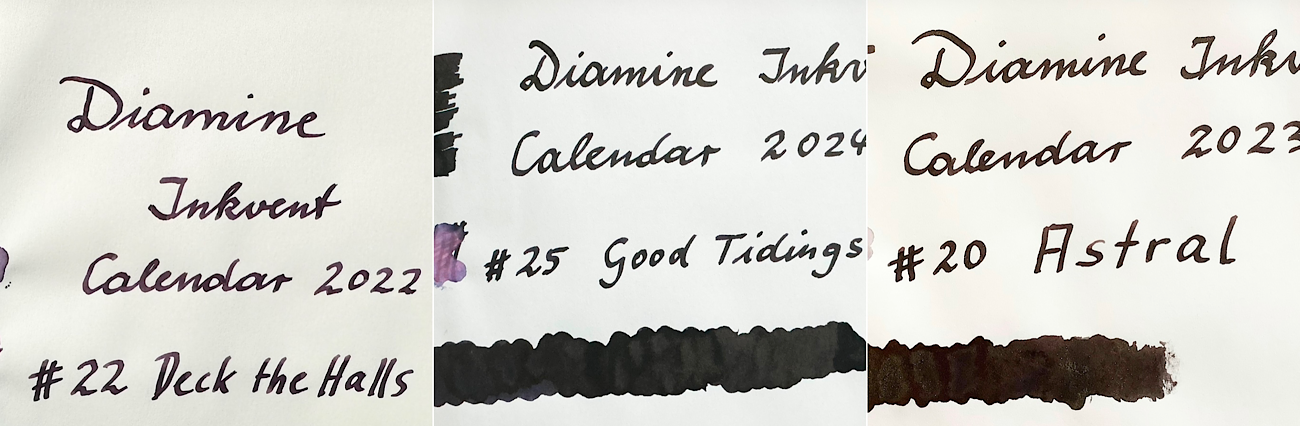 Diamine
Inkvent
Calendar 2022
#22 Deck the Halls
Diamine Inkv
Calendar 2024
#25 Good Tidings
Diamine Inkv
Calendar 2023
#20 Astral